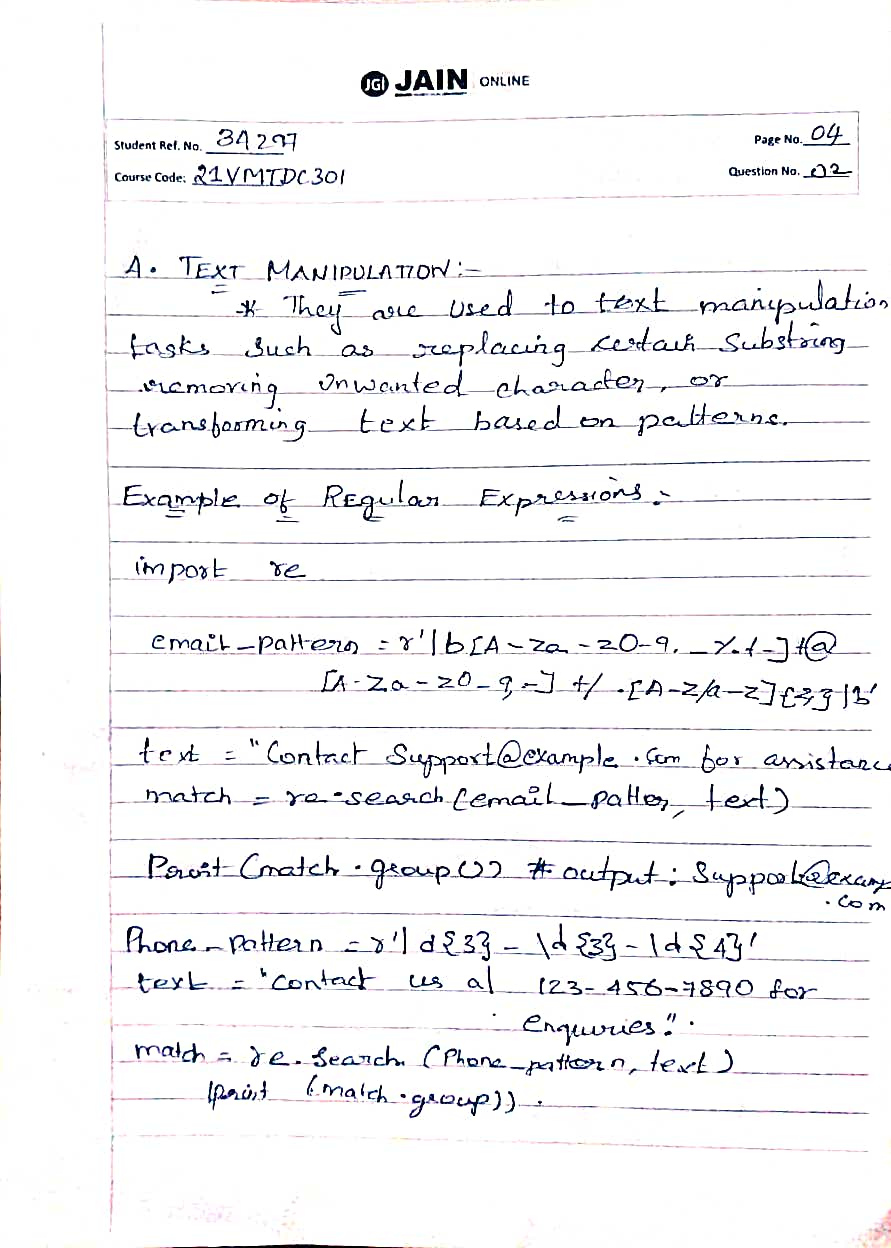 JGI JAIN ONLINE
Student Ref. No. 3A297
Page No. 04
Course Code: 21VMTDC301
Question No. 02
A. TEXT MANIPULATION:-
* They are used to text manipulation
tasks such as replacing certain substring
removing unwanted character, or
transforming text based on patterns.
Example of REgular Expressions:-
import re
email_pattern = r'|b[A-Za-z0-9._%+-]+@
[A-Za-z0-9,-]+/.[A-Z/a-z]{2,}|b'
text = "Contact Support@example.com for assistanc
match = re.search(email_patter, text)
Print (match.group()) # output: Support@examp
.com
Phone_pattern = r'|d{3}-\d{3}-|d{4}'
text = "Contact us at 123-456-7890 for
enquries".
match = re.search (Phone_pattern, text)
print (match.group)).